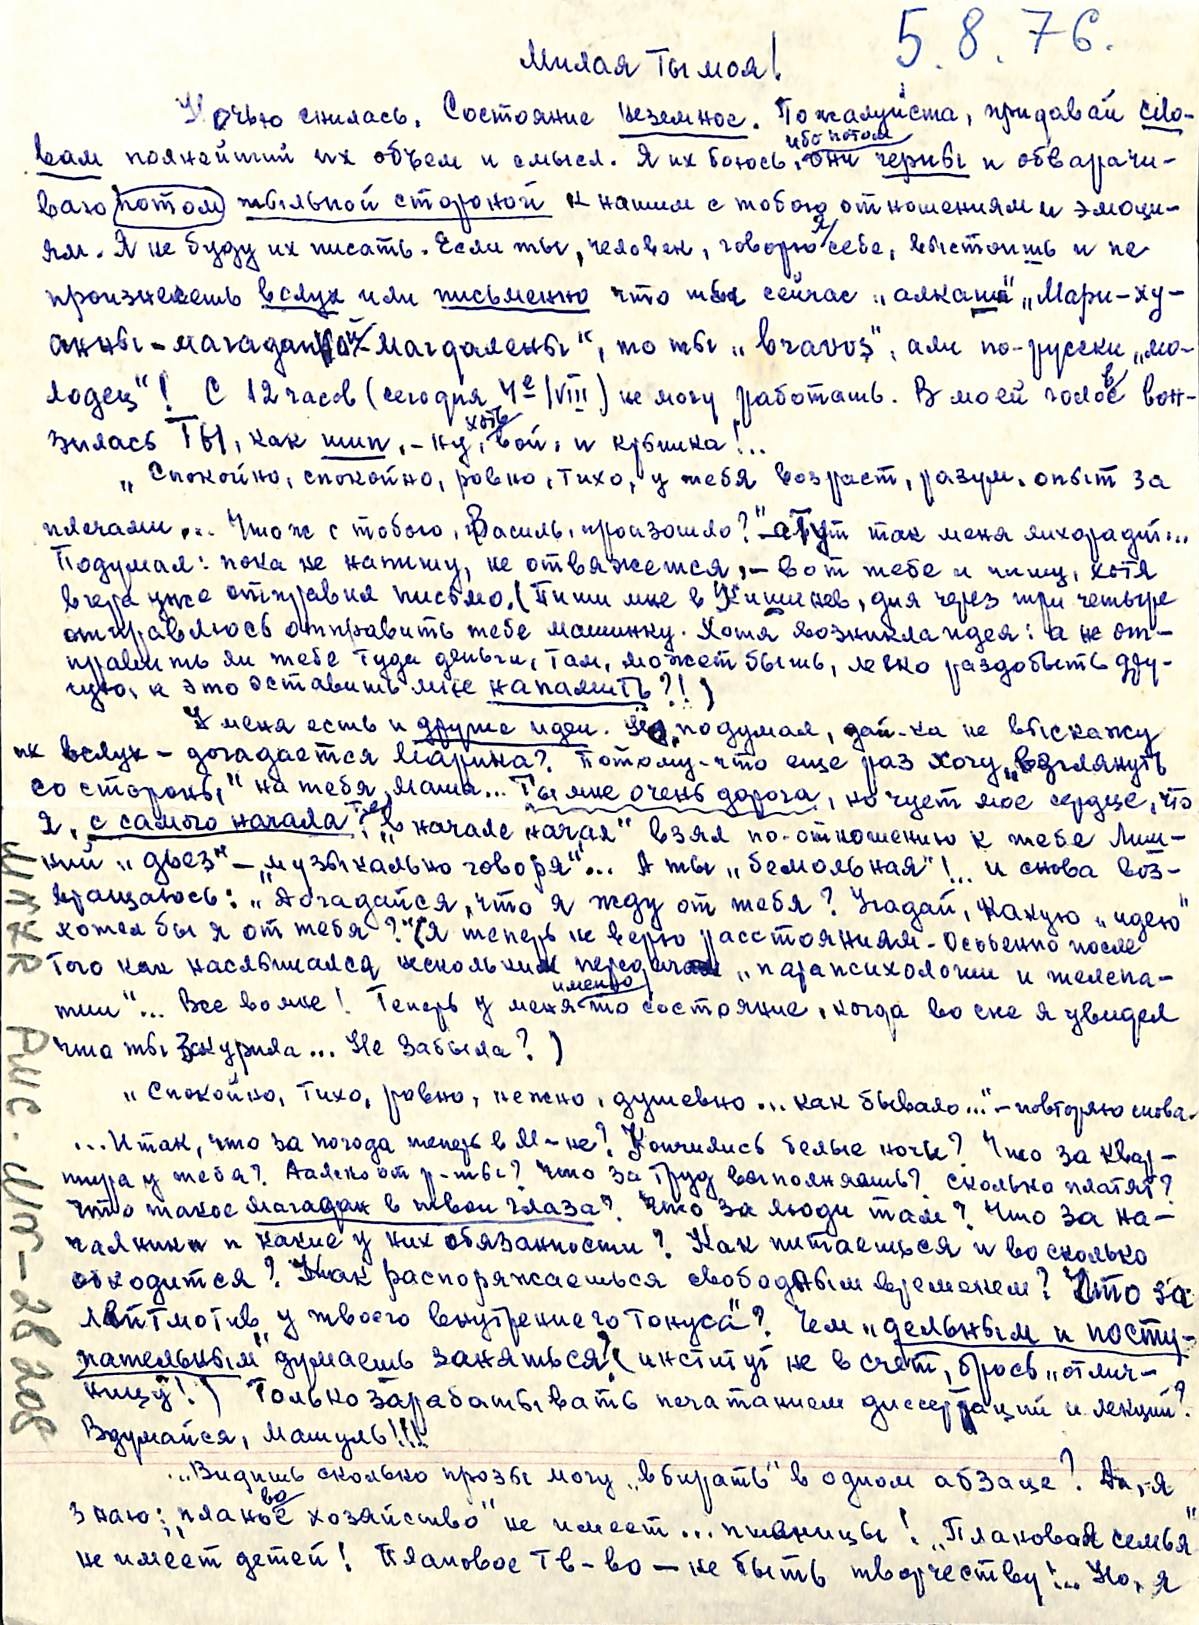 5.8.76.
Милая ты моя!
Ночью снилась. Состояние неземное. Пожалуйста, придавай сло-
вам полнейший их объем и смысл. Я их боюсь, ибо потом они черны и обварачи-
ваю потом тыльной стороной к нашим с тобою отношениям и эмоци-
ям. Я не буду их писать. Если ты, человек, говорю я себе, выстоишь и не
произнесешь вслух или письменно что ты сейчас „алкаш" „Мари-ху-
анны-магаданской-Магдалены", то ты „bravos", али по-русски „мо-
лодец"! С 12 часов (сегодня 4е/VIII) не могу работать. В моей голове вон-
зилась ТЫ, как шип, – ну, хоть вой, и крышка!..
„Спокойно, спокойно, ровно, тихо, у тебя возраст, разум, опыт за
плечами... Что ж с тобою, Василь, произошло?" – а тут так меня лихорадит...
Подумал: пока не напишу, не отвяжется, – вот тебе и пишу, хотя
вчера уже отправил письмо. (Пиши мне в Кишинев, дня через три четыре
отправлюсь отправить тебе машинку. Хотя возникла идея: а не от-
править ли тебе туда деньги, там, может быть, легко раздобыть дру-
гую, а это оставить мне на память?!)
У меня есть и другие идеи. Но, подумал, дай-ка не выскажу
их вслух – догадается Марина? Потому-что еще раз хочу „взглянуть
со стороны" на тебя, Маша... Ты мне очень дорога, но чует мое сердце, что
я, с самого начала, „в начале начал" взял по-отношению к тебе лиш-
ний „дьез" – „музыкально говоря"... А ты „бемольная"!.. и снова воз-
вращаюсь: „Догадайся, что я жду от тебя? Угадай, какую „идею"
хотел бы я от тебя?" (я теперь не верю расстояниям – особенно после
того как наслышался несколькими передачами „парапсихологии и телепа-
тии"... Все во мне! Теперь у меня именно то состояние, когда во сне я увидел
что ты закурила... Не забыла?)
„Спокойно, тихо, ровно, нежно, душевно... как бывало..." – повторяю снова.
...Итак, что за погода теперь в М-не? Кончились белые ночи? Что за квар-
тира у тебя? Далеко от р-ты? Что за труд выполняешь? Сколько платят?
Что такое магадан в твои глаза? Что за люди там? Что за на-
чальники и какие у них обязанности? Как питаешься и во сколько
обходится? Как распоряжаешься свободным временем? Что за
лейтмотив у твоего внутреннего тонуса"? Чем „дельным и посту-
пательным" думаешь заняться? (институт не в счет, брось „отлич-
ницу"!) Только зарабатывать печатанием диссертаций и лекций?
Вдумайся, Машуль!!!
...Видишь сколько прозы могу „вбирать" в одном абзаце? Да, я
знаю: „плановое хозяйство" не имеет... пшеницы! „Плановая семья"
не имеет детей! Плановое тв-во – не быть творчеству!.. Но, я